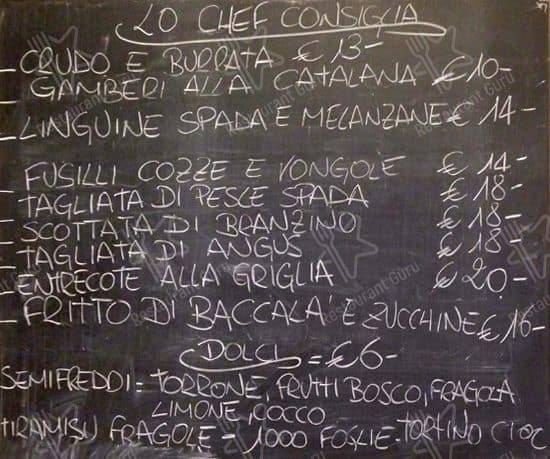 LO CHEF CONSIGLIA
- CRUDO E BURRATA € 13-
- GAMBERI ALLA CATALANA € 10-
- LINGUINE SPADA E MELANZANE € 14-
- FUSILLI COZZE E VONGOLE € 14-
- TAGLIATA DI PESCE SPADA € 18-
- SCOTTATA DI BRANZINO € 18-
- TAGLIATA DI ANGUS € 18-
- ENTRECOTE ALLA GRIGLIA € 20-
- FRITTO DI BACCALA' E ZUCCHINE € 16-
DOLCI = € 6-
SEMIFREDDI = TORRONE, FRUTTI BOSCO, FRAGOLA
LIMONE, COCCO
TIRAMISU FRAGOLE - 1000 FOGLIE - TORTINO CIOC
Restaurant Guru